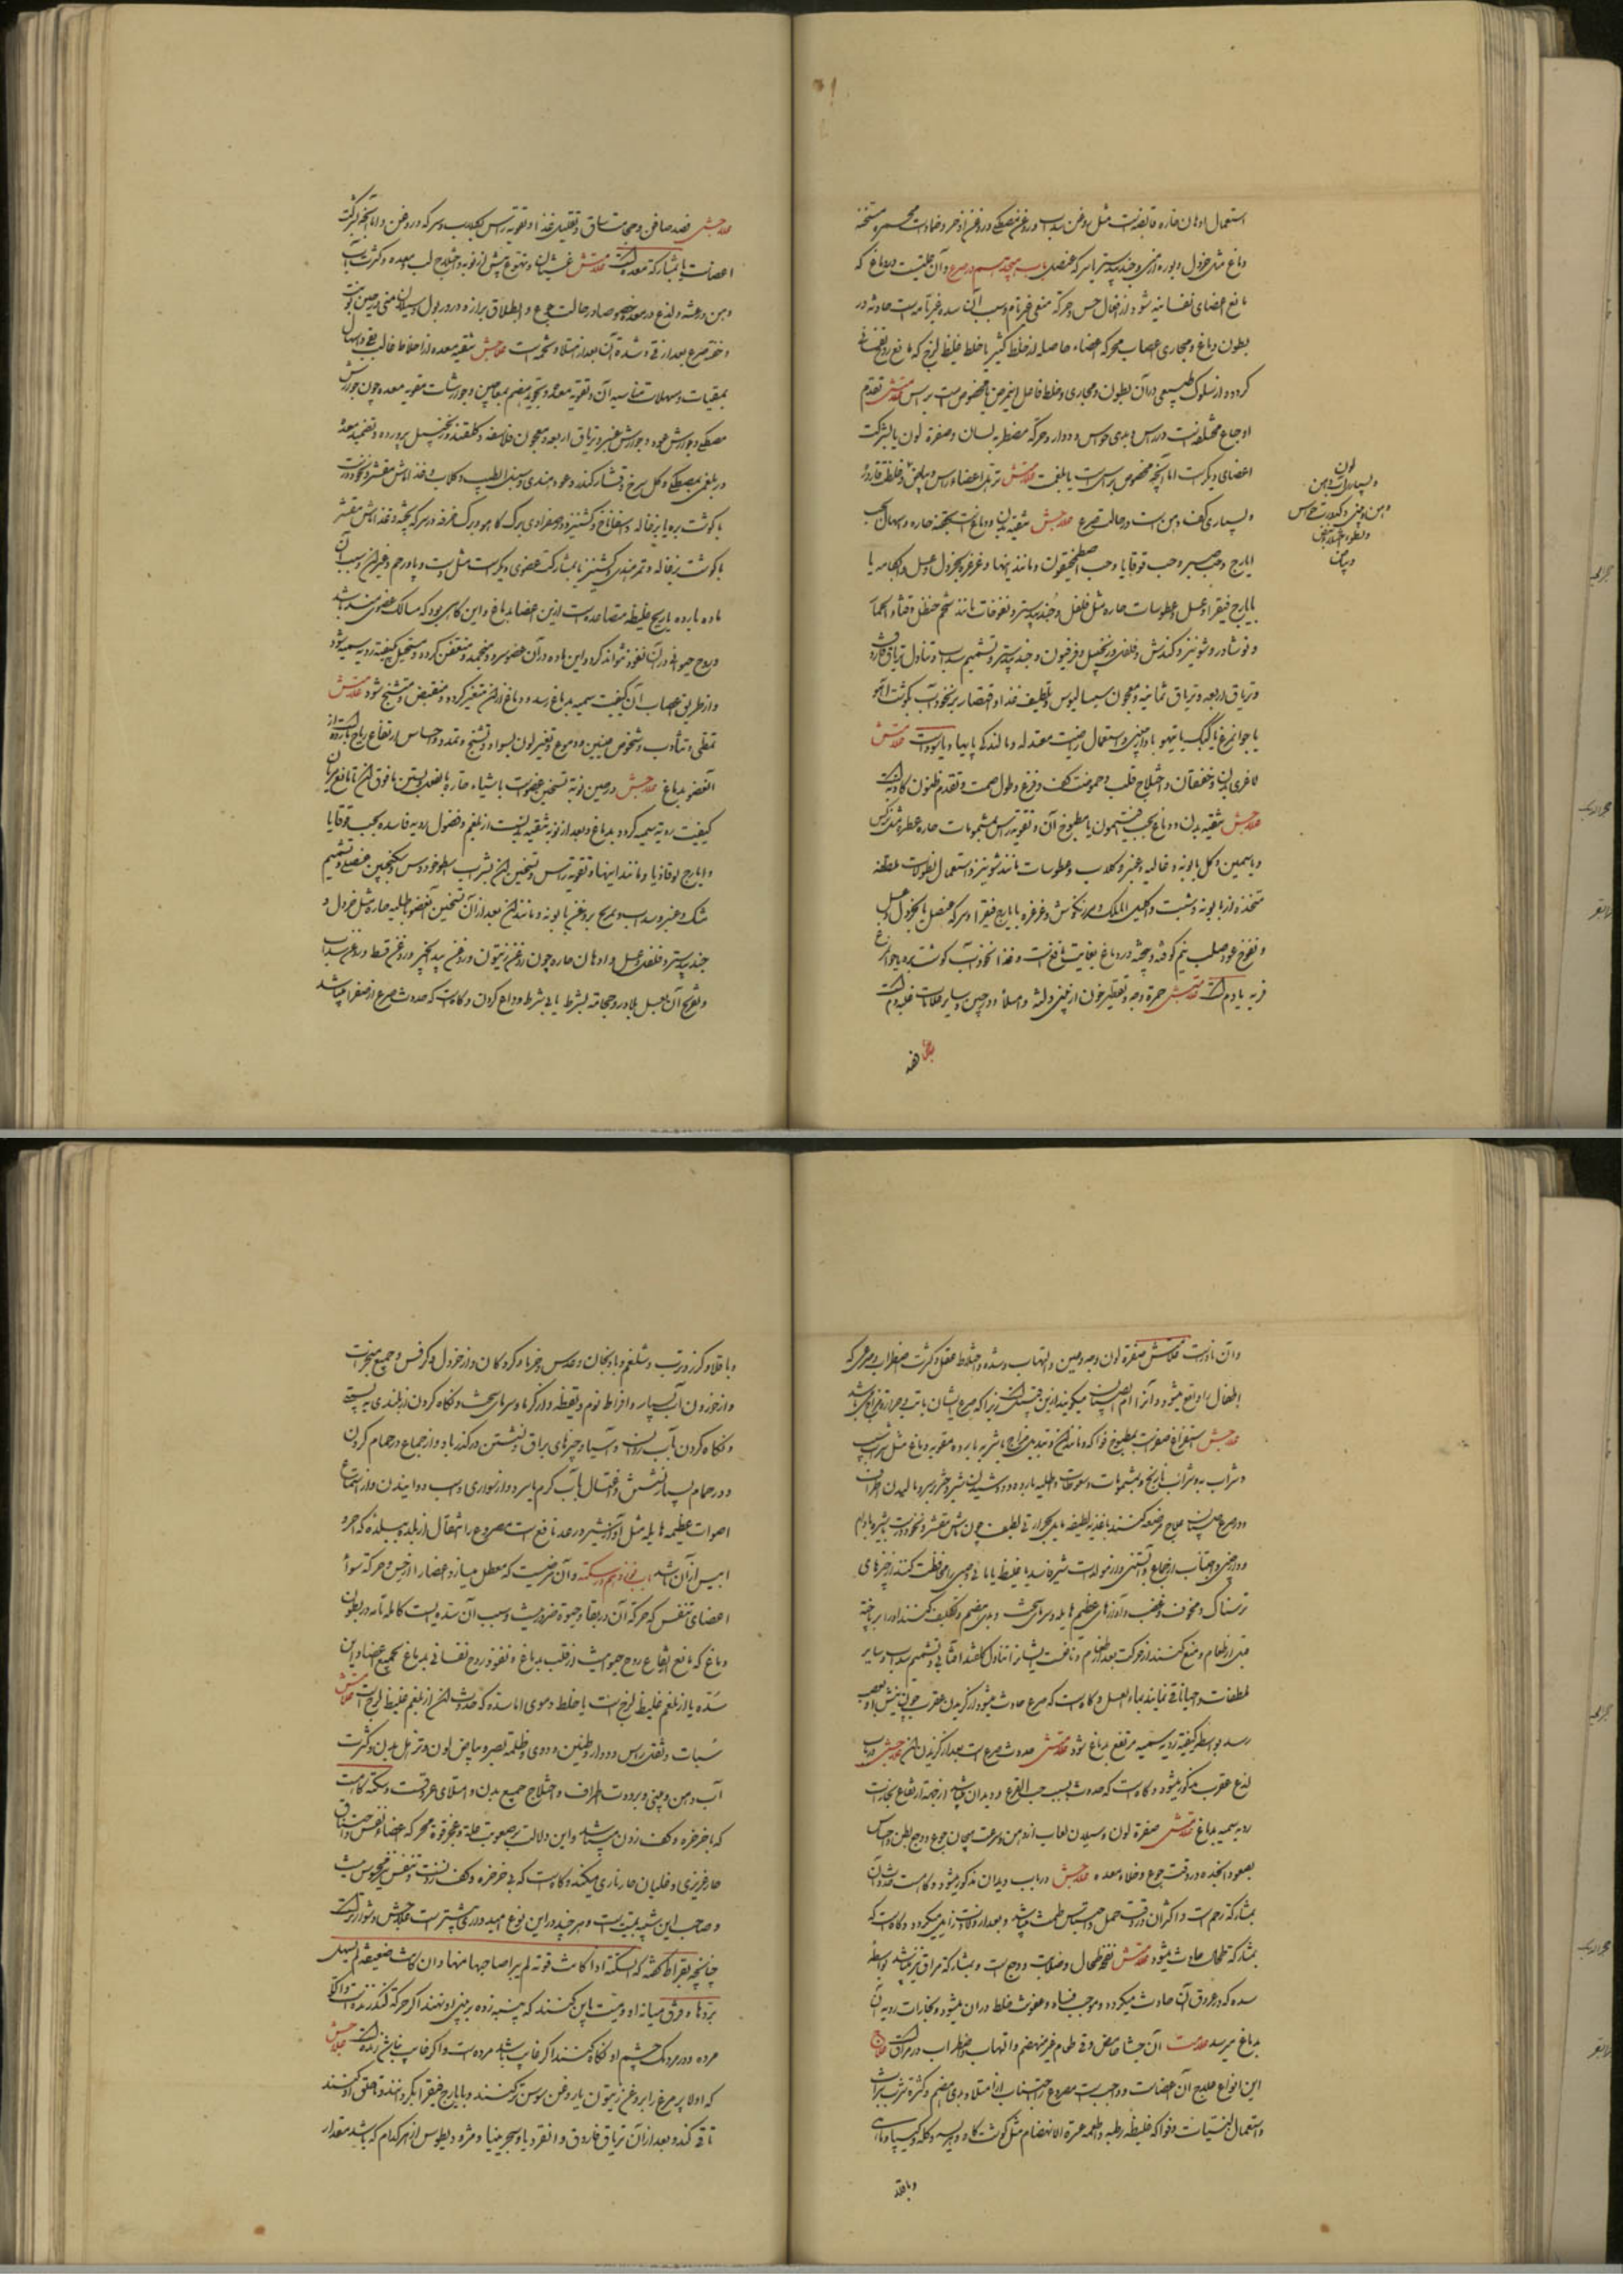 استعمال ادهان حاره قابضه است مثل روغن سداب و روغن مصطکی و روغن اذخر و ضمادات محمره مسخنه
دماغ مثل خردل و بوره ارمنی و جندبیدستر با سرکه عنصل باب هیجدهم در صرع و آن علتیست در دماغ که
مانع اعضای نفسانیه شود از افعال حس و حرکه منعی غیر تام و سبب آن سده غیر تامه است حادثه در
بطون دماغ و مجاری اعصاب محرکه اعضاء حاصله از خلط کثیر یا خلط غلیظ لزج که مانع روح نفسانی
گردد از سلوک طبیعی در آن بطون و مجاری و خلط فاعل این مرض یا مخصوص است براس علامتش تقدم
اوجاع مختلفه است در راس و بدی حواس و دوار و حرکه مضطربه لسان و صفرة لون یا بشرکت
اعضای دیگرست اما آنچه مخصوص براس است یا بلغمیست علامتش ترهل اعضاء و راس و بیاض و غلظت قاروره
و بسیاری کف دهن است در حالت صرع علاجش تنقیه بدن و دماغ است بحقنه حاره و اسهال بحب
ایارج و حب صبر و حب قوقایا و حب اصطمخیقون و مانند اینها و غرغره بخردل و عسل و آبکامه یا
بایارج فیقرا و عسل و عطوسات حاره مثل فلفل و جندبیدستر و نفوخات مانند شحم حنظل و قثاء الحمار
و نوشادر و شونیز و کندش و فلفل و زنجبیل و فرفیون و جندبیدستر و تشمیم سداب و تناول تریاق فاروق
و تریاق اربعه و تریاق ثمانیه و معجون سیسالیوس و تلطیف غذا و اقتصار بر نخوداب بگوشت آهو
یا جوانمرغ یا کبک یا تیهو با دارچینی و استعمال ریاضت معتدله و مالیدن پایها و یا سوداویست علامتش
لاغری بدن و خفقان و اختلاج قلب و حموضت کف و فزع و طول صمت و تقدم ظنون کاذبه است
علاجش تنقیه بدن و دماغ بحب افتیمون یا مطبوخ آن و تقویه راس بمشمومات حاره عطره مثل نرگس
و یاسمین و گل بابونه و غالیه و عنبر و گلاب و عطوسات مانند شونیز و استعمال نطولات ملطفه
متخذه از بابونه و شبت و اکلیل الملک و مرزنگوش و غرغره بایارج فیقرا و سرکه عنصل یا بخردل و عسل
و نفوخ عود صلیب نیم کوفته و بیخته در دماغ بغایت نافع است و غذا نخوداب گوشت بره یا جوانمرغ
فربه یا دمویست علامتش حمرة وجه و تقطیر خون از بینی و لثه و امتلاء اورده چین و سایر علامات غلبه دم است
لون
و بسیاری آب دهن
و بینی و کدورت حواس
علاجش فصد
علاجش فصد صافن و حجامت ساق و تقلیل غذا و تقویه راس بگلاب و سرکه و روغن و اما آنچه بشرکت
اعضاست یا بمشارکه معده است علامتش غثیان و تهوع پیش از نوبه و اختلاج لب و معده و کثرت آب
دهن و رعشه و لذع در معده خصوصا در حالت جوع و انطلاق براز و ادرار بول و سیلان منی در حین نوبت
و خفت صرع بعد از قی و شدت آن بعد از امتلا و تخمه است علاجش تنقیه معده از اخلاط غالبه بقی و اسهال
بمقیات و مسهلات مناسبه آن و تقویه معده و تجوید هضم بمعاجین و جوارشات مقویه معده چون جوارش
مصطکی و جوارش عود و جوارش عنبر و تریاق اربعه و معجون فلاسفه و گلقند و زنجبیل پرورده و تضمید معده
در بلغمی بمصطکی و گل سرخ و قشار کندر و عود هندی و سنبل الطیب و گلاب و غذا ماش مقشر و نخوداب
با گوشت بره یا بزغاله و اسفاناخ و گشنیز و در صفراوی ببرگ کاهو و برگ خرفه در سرکه پخته و غذا ماش مقشر
با گوشت بزغاله و تمرهندی و گشنیز یا بمشارکت عضوی دیگر است مثل دست و پا و رحم و غیر آن و سبب آن
ماده بارده یا ریح غلیظ متصاعده است از این اعضا بدماغ و این گاهی بود که مسالک عضو منسد باشد
و روح حیوانی در آن نفوذ نتواند کرد و این ماده در آن عضو سرد و منجمد و متعفن گردد و مستحیل بکیفیة ردیه سمیه شود
و از طریق اعصاب آن کیفیت سمیه بدماغ رسد و دماغ از آن متغیر گردد و منقبض و متشنج شود علامتش
تمطی و تثاؤب و شخوص عینین و دموع و تغیر لون بسواد و تشنج و تمدد و احساس ارتفاع ریاح بارده است از
آن عضو بدماغ علاجش در حین نوبه تسخین عضو است باشیاء حاره یا بعصب بستن مافوق آن تا مانع سریان
کیفیت ردیه سمیه گردد بدماغ و بعد از نوبه تنقیه بدنست از بلغم و فضول ردیه فاسده بحب قوقایا
و ایارج لوغاذیا و مانند اینها و تقویه راس و تسخین آن بشراب اسطوخودوس و سکنجبین عنصلی و تشمیم
مشک و عنبر و سداب و تمریخ بروغن بابونه و مانند آن بعد از آن تسخین آن عضو باطلیه حاره مثل خردل و
جندبیدستر و فلفل و عسل و ادهان حاره چون روغن زیتون و روغن بیدانجیر و روغن قسط و روغن سداب
و تقریح آن بعسل بلادر و حجامه بشرط یا بی شرط و داغ کردن و گاهست که حدوث صرع از صفرا میباشد
و آن نادرست علامتش صفرة لون وجه و عین و التهاب و شده و اختلاط عقل و کثرت اضطراب و صرعی که
اطفال را واقع میشود و آنرا ام الصبیان میگویند ازین قسم است زیرا که صرع ایشان با تب و حرارة مزاج میباشد
علاجش استفراغ صفراست بمطبوخ فواکه و مانند آن و تبدیل مزاج باشربه بارده مقویه دماغ مثل شراب سیب
و شراب به و شراب نارنج و بمشمومات و سعوطات و اطلیه بارده و دوشیدن شیر دختر بر سر و مالیدن اطراف
و در صرع صبیان علاج مرضعه کنند باغذیه لطیفه مایل بحرارتی لطیف چون ماش مقشر و نخوداب با شیره بادام
و دارچینی و اجتناب از جماع و آبستنی و از مولدات شیر فاسد یا غلیظ یا مائی و صبی را محافظت کنند از چیزهای
ترسناک و مخوف و غضب و آوازهای عظیم هایله و سرمای سخت و بدی هضم و تکلیف کنند او را بریاضت
قبل از طعام و منع کنند از حرکت بعد از طعام و نافع است ایشانرا تناول گلقند آفتابی و تشمیم سداب و سایر
ملطفات و احیانا قی نمایند بماء العسل و گاهست که صرع حادث میشود از گزیدن عقرب چون نیش او بعصب
رسد بواسطه کیفیة ردیه سمیه مرتفع بدماغ شود علامتش حدوث صرع است بعد از گزیدن آن علاجش در باب
لذع عقرب مذکور میشود و گاهست که حدوث بسبب حب القرع و دیدان میباشد از جهة ارتفاع بخارات
ردیه سمیه بدماغ علامتش صفرة لون و سیلان لعاب از دهن و سرعت هیجان جوع و وجع بطن و احساس
بصعود ابخره در وقت جوع و خلاء معده علاجش در باب دیدان مذکور میشود و گاهست حدوث آن
بمشارکه رحم است و اکثر آن در وقت حمل و احتباس طمث میباشد و بعد از ولادت زایل میگردد و گاهست که
بمشارکه طحال حادث میشود علامتش نفخ طحال و صلابت و وجع است و بمشارکه مراق نیز میباشد بواسطه
سده که در عروق آن حادث میگردد و موجب فساد و عفونت خلط در آن میشود و بخارات ردیه آن
بدماغ میرسد علامت آن جشاء حامض و قی طعام غیر منهضم و التهاب و اضطراب در مراق است علاج
این انواع علاج آن اعضاست و واجبست مصروع را اجتناب از امتلا و بدی هضم و کثرت شرب شراب
و استعمال لبنیات و فواکه غلیظه رطبه و اطعمه عسرة الانهضام مثل گوشت گاو و هریسه و کله و کیپا و ماهی
و باقلا
و باقلا و گزر و ترب و شلغم و بادنجان و عدس و خرما و گردکان و از خردل و کرفس و جمیع مبخرات
و از خوردن آب بسیار و افراط نوم و یقظه و از گرما و سرمای سخت و نگاه کردن از بلندی به پستی
و نگاه کردن بآب روان و آسیا و چیزهای براق و نشستن در گذر باد و از جماع و حمام کردن
و در حمام بسیار نشستن و اغتسال بآب گرم یا سرد و از سواری و اسب دوانیدن و از استماع
اصوات عظیمه هایله مثل آواز شیر و رعد نافع است مصروع را انتقال از بلد به بلده که احر و
ایبس از آن باشد باب نوزدهم در سکته و آن مرضیست که معطل میسازد اعضا را از حس و حرکه سوای
اعضای تنفس که حرکه آن در بقاء و حیوة ضروریست و سبب آن سده ایست کامله تامه در بطون
دماغ که مانع ارتفاع روح حیوانیست از قلب بدماغ و نفوذ روح نفسانی بدماغ بجمیع اعضا و این
سده یا از بلغم غلیظ لزج است یا خلط دموی اما سده که حدوث آن از بلغم غلیظ لزجست علامتش
سبات و ثقل راس و دوار و طنین و دوی و ظلمة بصر و بیاض لون و ترهل بدن و کثرت
آب دهن و بینی و برودت اطراف و اختلاج جمیع بدن و امتلای عروقست و سکته گاهست
که با خرخره و کف زدن میباشد و این دلالت بر صعوبت علة و عجز قوة محرکه اعضاء نفس و اختناق
حار غریزی و غلیان حار ناری میکند و گاهست که بی خرخره و کف زدنست و تنفس نیز محسوس نیست
و صاحب این شبیه بمیتست و هر چند در این نوع امیدواری بیشترست علاجش دشوارترست
چنانچه بقراط گفته که السکتة اذا کانت قویة لم یبرا صاحبها منها و ان کانت ضعیفة لم یسهل
برؤها و فرق میانه او و میت باین کنند که پنبه زده بر بینی او نهند اگر حرکه کند زنده است و الا
مرده و در مردمک چشم او نگاه کنند اگر غایب باشد مرده است و اگر غایب نباشد زنده است علاجش
که اولا پر مرغ را بروغن زیتون یا روغن سوسن تر کنند و بایارج فیقرا بگردانند و بحلق او کنند
تا قی کند و بعد از آن تریاق فاروق و انقردیا و سجزینیا و مثرودیطوس از هر کدام که باشد مقدار